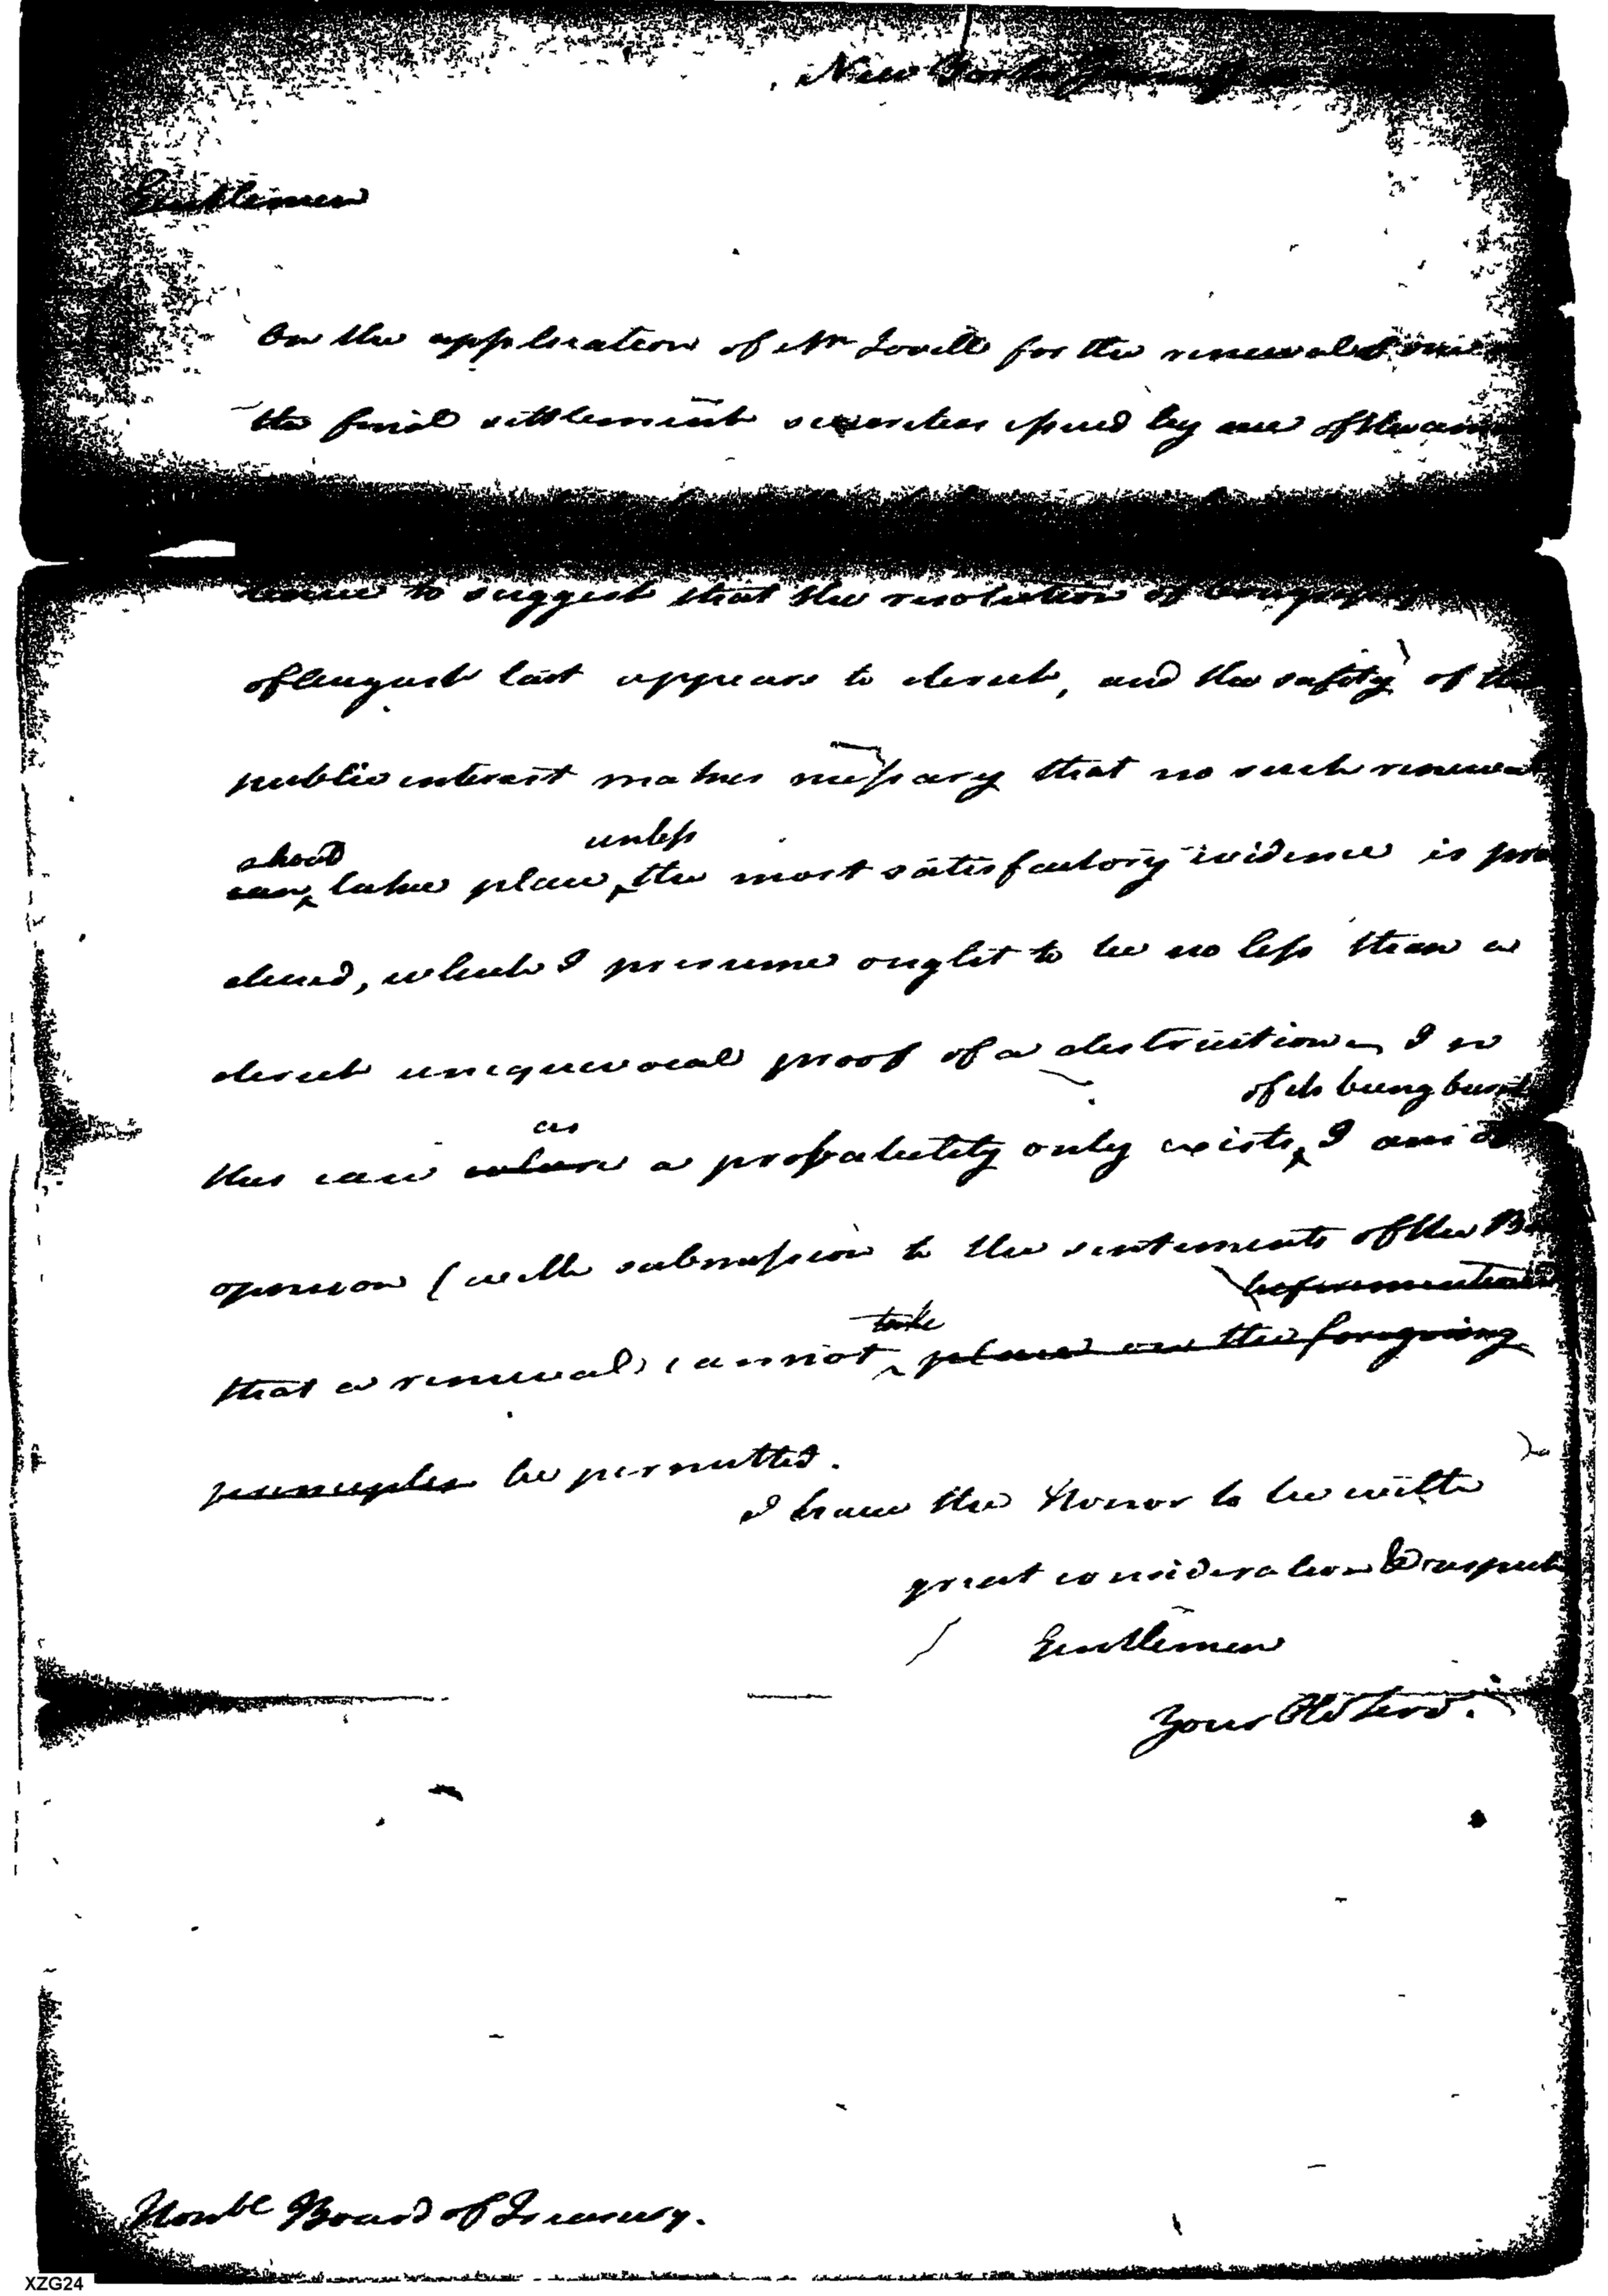 New York January
Gentlemen
On the application of Mr Lovell for the renewal of one
the final settlement securities issued by me of the
leave to suggest that the resolution of Congress
of August last appears to direct, and the safety of the
public interest makes necessary that no such renewal
shoud unless
can take place the most satisfactory evidence is pro
duced, which I presume ought to be no less than a
direct unequivocal proof of a destruction In
of its being burnt
as
this case where a probability only exists, I am of
opinion (with submission to the sentiments of the B
beforementioned
take
that a renewal cannot place on the foregoing
principles be permitted.
I have the Honor to be with
great consideration & respect
Gentlemen
Your Obd Serv.
Honble Board of Treasury.
XZG24